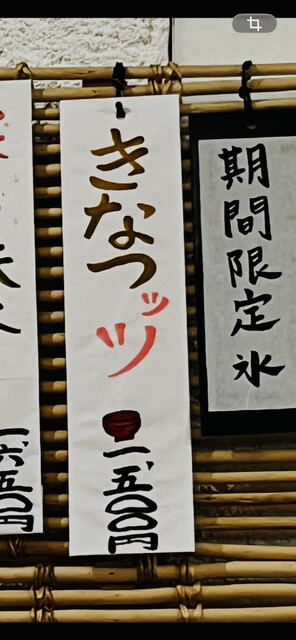 期間限定 氷
きなつッツ 一、五〇〇円
一、六五〇円